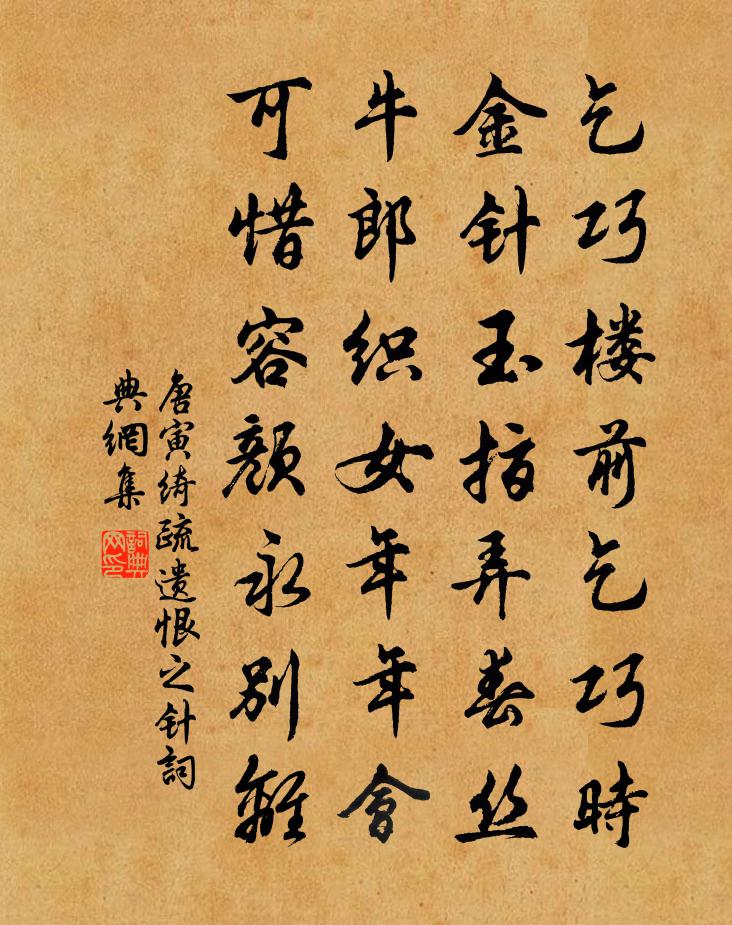 乞巧楼前乞巧時
金针玉指弄春丝
牛郎织女年年會
可惜容颜永别離
唐寅绮疏遗恨之针詞
典網集
詞典网印